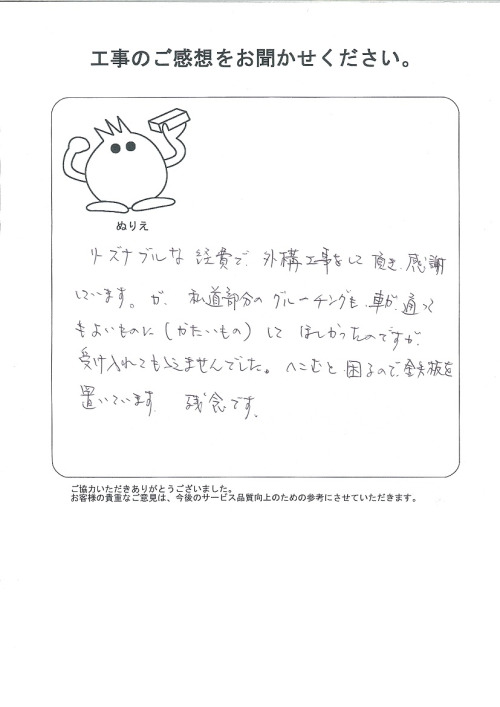 工事のご感想をお聞かせください。
ぬりえ
リーズナブルな経費で、外構工事をして頂き、感謝
しています。が、私道部分のグレーチングも、車が通って
もよいものに(かたいもの)して ほしかったのですが、
受け入れてもらえませんでした。へこむと困るので、鉄板を
置いています。 残念です。
ご協力いただきありがとうございました。
お客様の貴重なご意見は、今後のサービス品質向上のための参考にさせていただきます。